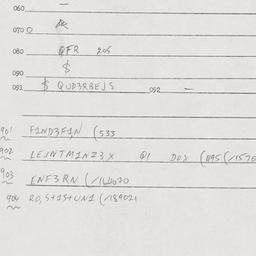 060 —
070
080 QFR 205
090 $
091 $ QUD3RBEJS 092 —
901 F1ND3F1N (533
902 LEJNTM1NZ3X Q1 (1195 (/1570
903 ENF3RN (/164070
904 RO,S+1S+UN1 (/189021